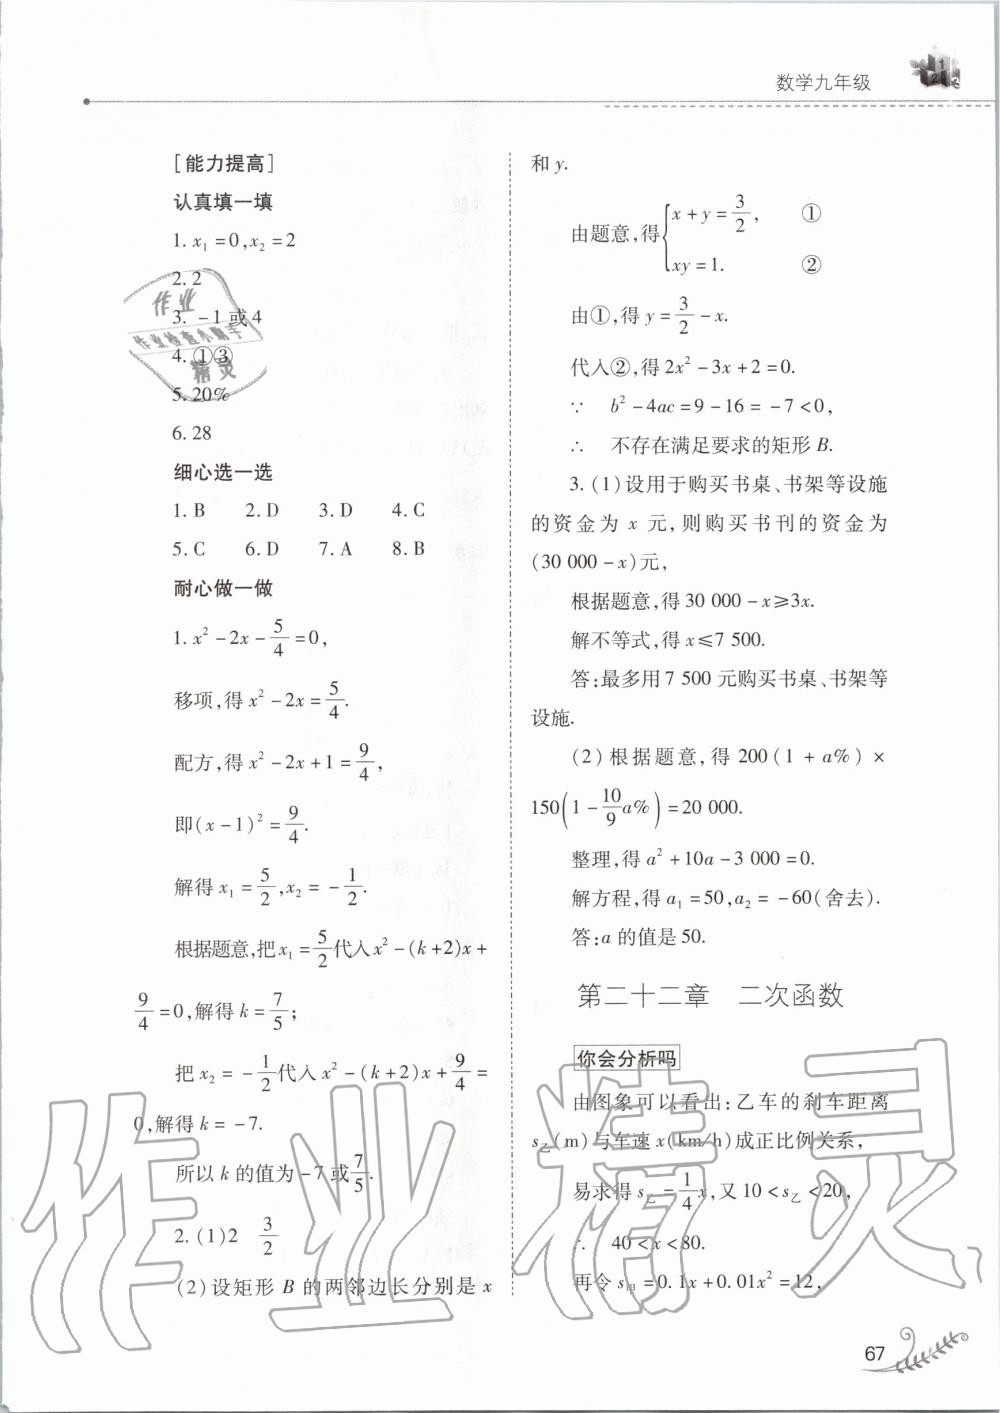 数学九年级
[能力提高]
认真填一填
1. x₁ = 0, x₂ = 2
2. 2
3. -1 或 4
4. ①③
5. 20%
6. 28
细心选一选
1. B  2. D  3. D  4. C
5. C  6. D  7. A  8. B
耐心做一做
1. x² - 2x - 5/4 = 0,
移项,得 x² - 2x = 5/4.
配方,得 x² - 2x + 1 = 9/4,
即(x - 1)² = 9/4.
解得 x₁ = 5/2, x₂ = -1/2.
根据题意,把 x₁ = 5/2 代入 x² - (k+2)x +
9/4 = 0,解得 k = 7/5;
把 x₂ = -1/2 代入 x² - (k+2)x + 9/4 =
0,解得 k = -7.
所以 k 的值为 -7 或 7/5.
2. (1)2  3/2
(2)设矩形 B 的两邻边长分别是 x
和 y.
由题意,得{x + y = 3/2, ①
xy = 1. ②
由①,得 y = 3/2 - x.
代入②,得 2x² - 3x + 2 = 0.
∵ b² - 4ac = 9 - 16 = -7 < 0,
∴ 不存在满足要求的矩形 B.
3. (1)设用于购买书桌、书架等设施
的资金为 x 元,则购买书刊的资金为
(30 000 - x)元,
根据题意,得 30 000 - x ≥ 3x.
解不等式,得 x ≤ 7 500.
答:最多用 7 500 元购买书桌、书架等
设施.
(2)根据题意,得 200(1 + a%) ×
150(1 - 10/9 a%) = 20 000.
整理,得 a² + 10a - 3 000 = 0.
解方程,得 a₁ = 50, a₂ = -60(舍去).
答:a 的值是 50.
第二十二章 二次函数
你会分析吗
由图象可以看出:乙车的刹车距离
s乙(m)与车速 x(km/h)成正比例关系,
易求得 s乙 = 1/4 x,又 10 < s乙 < 20,
∴ 40 < x < 80.
再令 s甲 = 0.1x + 0.01x² = 12,
67
作业
作业检查小助手
精灵
作业精灵